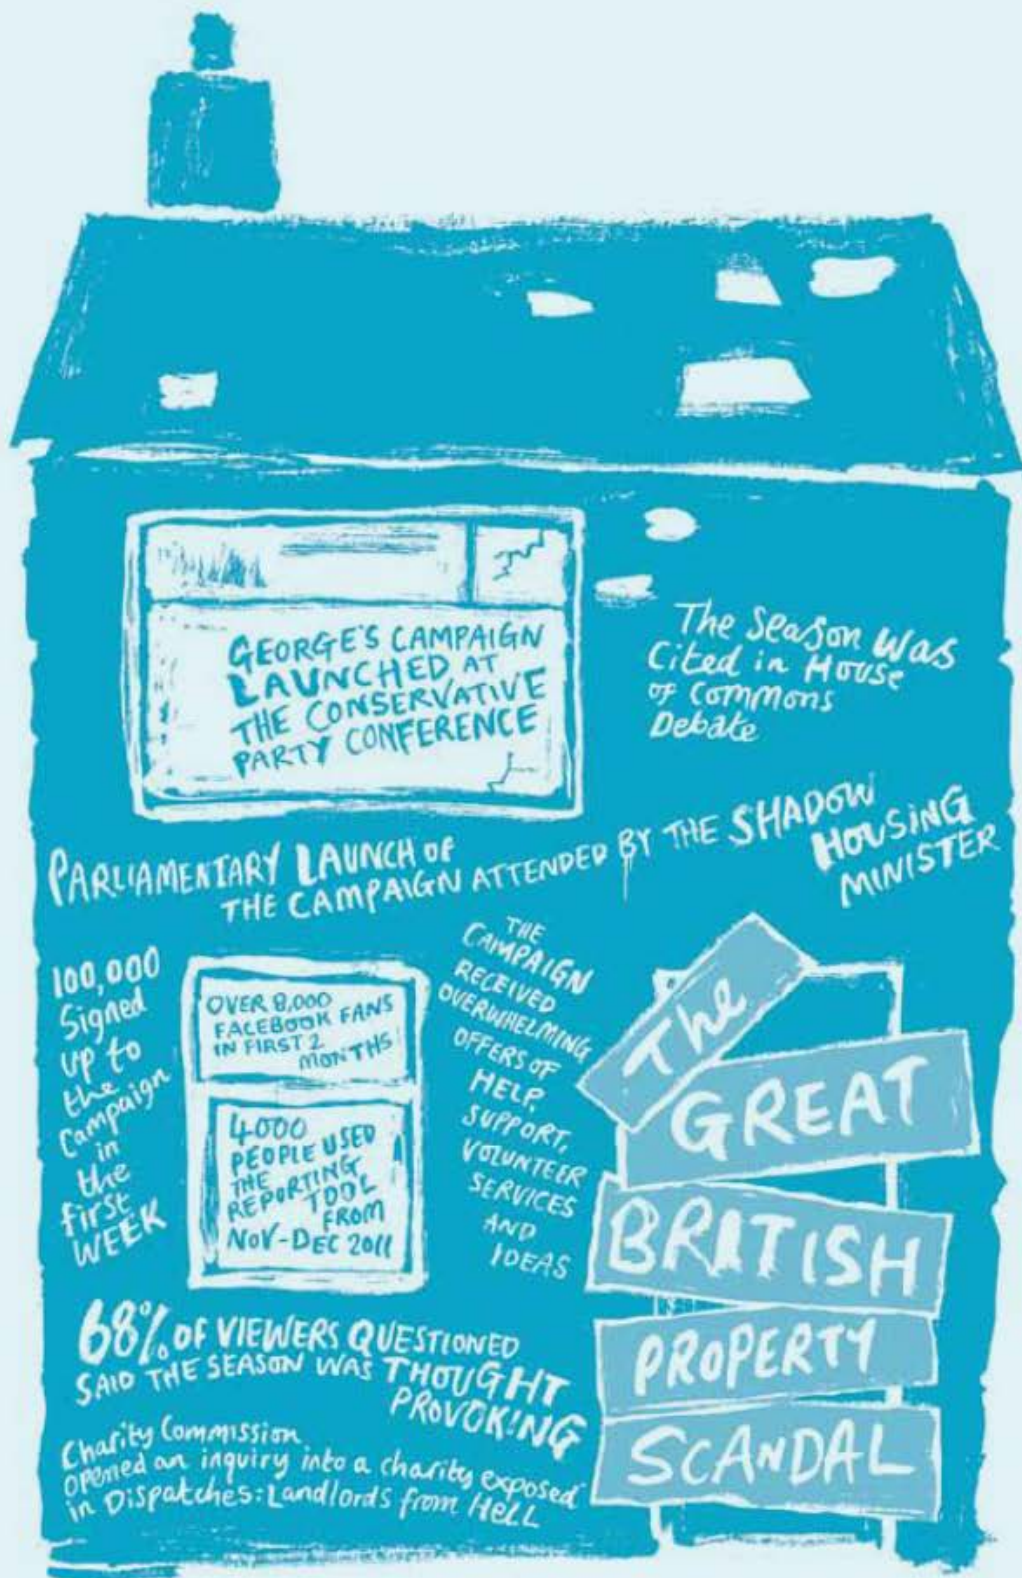 GEORGE'S CAMPAIGN
LAUNCHED AT
THE CONSERVATIVE
PARTY CONFERENCE
The Season Was
Cited in House
of Commons
Debate
PARLIAMENTARY LAUNCH OF
THE CAMPAIGN ATTENDED BY THE SHADOW
HOUSING
MINISTER
100,000
Signed
up to
the
Campaign
in
the
first
WEEK
OVER 8,000
FACEBOOK FANS
IN FIRST 2
MONTHS
4000
PEOPLE USED
THE
REPORTING
TOOL
FROM
NOV-DEC 2011
THE
CAMPAIGN
RECEIVED
OVERWHELMING
OFFERS OF
HELP,
SUPPORT,
VOLUNTEER
SERVICES
AND
IDEAS
The
GREAT
BRITISH
PROPERTY
SCANDAL
68% OF VIEWERS QUESTIONED
SAID THE SEASON WAS THOUGHT
PROVOKING
Charity Commission
opened an inquiry into a charity exposed
in Dispatches: Landlords from HELL